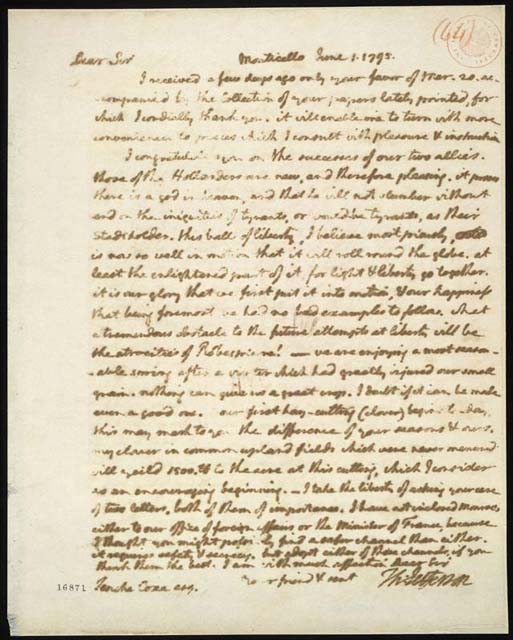 (44)
Dear Sir Monticello June 1. 1795.
I received a few days ago only your favor of Mar. 20. ac-
companied by the Collection of your papers lately printed, for
which I cordially thank you. it will enable me to turn with more
convenience to pieces which I consult with pleasure & instruction
I congratulate you on the successes of our two allies.
those of the Hollanders are new, and therefore pleasing. it proves
there is a god in heaven, and that he will not slumber without
end on the iniquities of tyrants, or would be tyrants, as their
Stadtholder. this ball of liberty, I believe most piously,
is now so well in motion that it will roll round the globe. at
least the enlightened part of it, for light & liberty go together.
it is our glory that we first put it into motion, & our happiness
that being foremost we had no bad examples to follow. what
a tremendous obstacle to the future attempts at liberty will be
the atrocities of Robespierre! — we are enjoying a most season-
able after a winter which had greatly injured our small
grain. nothing can give us a great crop. I doubt if it can be made
even a good one. our first hay-cutting (clover) begins to-day.
this may mark to you the difference of your seasons & ours.
my clover in common upland fields which were never manured
will yield 1500. ℔ to the acre at this cutting, which I consider
as an encouraging beginning. — I take the liberty of asking your care
of two letters, both of them of importance. I have not inclosed them
either to our office of foreign affairs or the Minister of France, because
I thought you might possibly find a safer channel than either.
it requires safety & secrecy. but adopt either of those channels if you
think them the best. I am with much affection Dear Sir
Your friend & servt
Th: Jefferson
Tenche Coxe esq.
16871